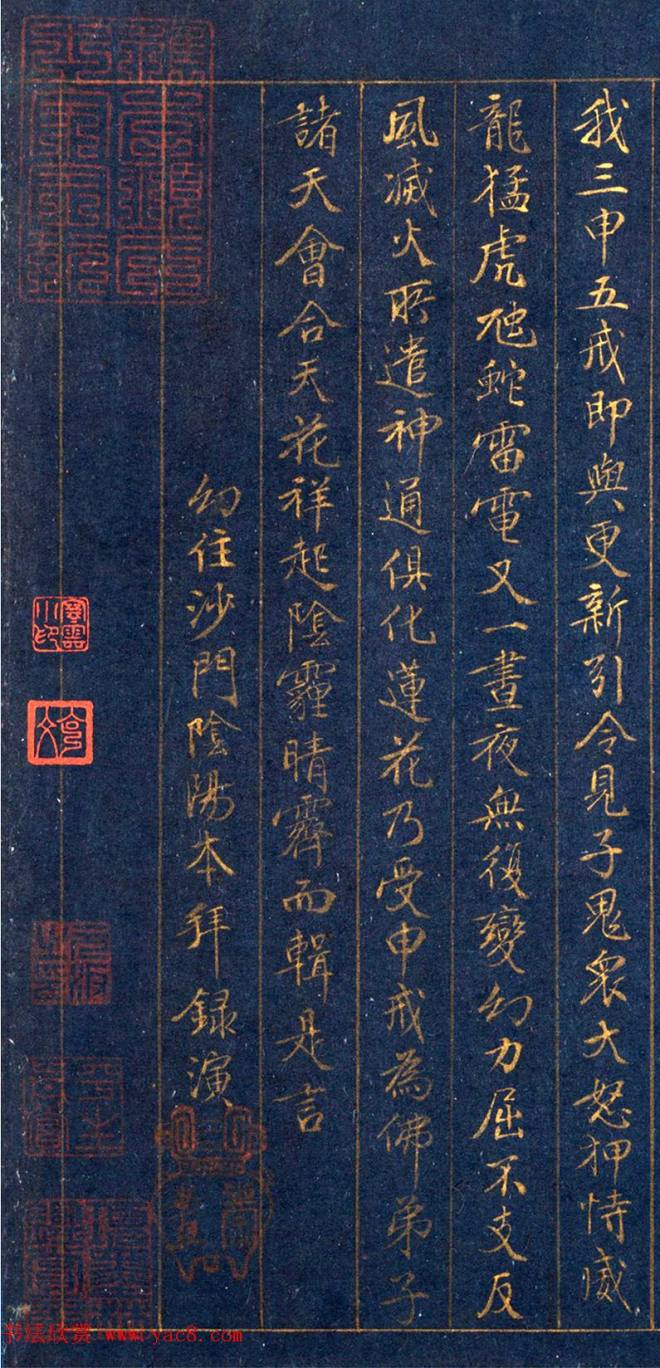 我三申五戒即與更新引令見子鬼衆大怒狎恃威
龍猛虎虺蛇雷電又一晝夜無復變幻力屈不支反
風滅火眎遣神通俱化蓮花乃受申戒為佛弟子
諸天會合天花祥起陰霾晴霽而輯是言
幻住沙門陰陽本拜録演
书法欣赏 www.yac8.com